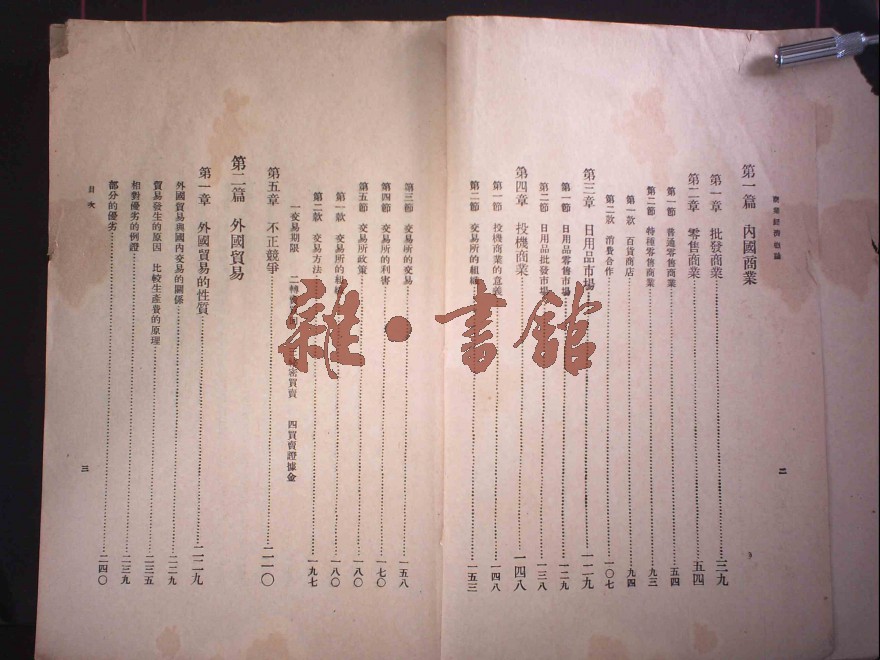 商業經濟概論
二
第一篇 內國商業
第一章 批發商業 三九
第二章 零售商業 五四
第一節 普通零售商業 五四
第二節 特種零售商業 九三
第一款 百貨商店 九四
第二款 消費合作 一〇七
第三章 日用品市場 一二九
第一節 日用品零售市場 一二九
第二節 日用品批發市場 一三八
第四章 投機商業 一四八
第一節 投機商業的意義 一四八
第二節 交易所的組織 一五三
第三節 交易所的交易 一五八
第四節 交易所的利害 一七〇
第五節 交易所政策 一八〇
第一款 交易所的組織 一八〇
第二款 交易方法 一九七
一交易期限 二轉賣買 密買賣 四買賣證據金
第五章 不正競爭 二一〇
第二篇 外國貿易
第一章 外國貿易的性質 二二九
外國貿易與國內交易的關係 二二九
貿易發生的原因 比較生產費的原理 二三五
相對優劣的例證 二三九
部分的優劣 二四〇
目次
三
雜·書館